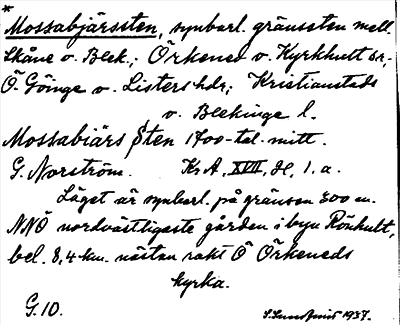 *
Mossabjärssten, synbarl. gränssten mell.
Skåne o. Blek.; Örkened o. Kyrkhult snr,
Ö. Göinge o. Listers hdr; Kristianstads
o. Blekinge l.
Mossabiärs Sten 1700-tal. mitt.
G. Norström. KrA, XVII, H, 1. a.
Läget är synbarl. på gränsen 300 m.
NNÖ nordvästligaste gården i byn Rönhult,
bel. 8,4 km. nästan rakt Ö Örkeneds
kyrka.
G. 10. 1937.